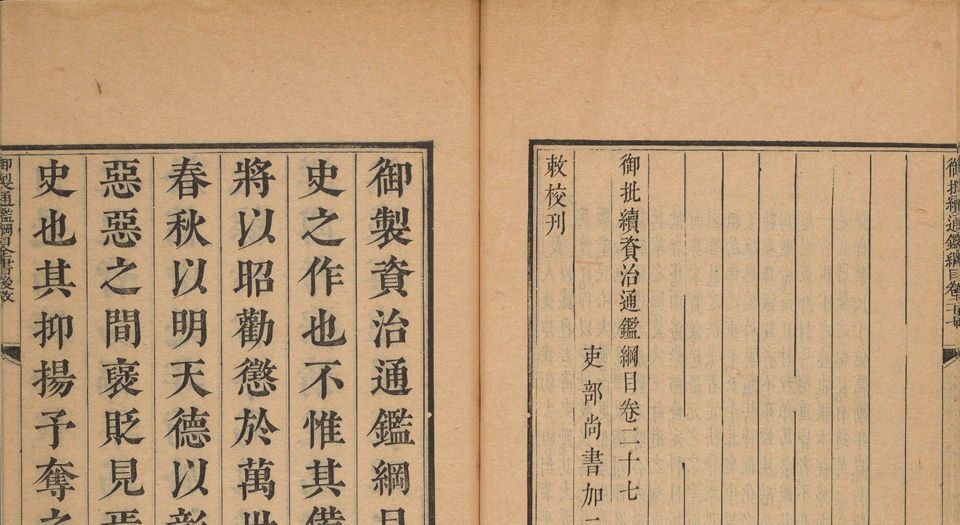 御批續通鑑綱目卷二十七
御批續資治通鑑綱目卷二十七
吏部尚書加
敕校刊
御製資治通鑑綱目
史之作也不惟其備
將以昭勸懲於萬世
春秋以明天德以彰
惡惡之間褒貶見焉
史也其抑揚予奪之
御製通鑑綱目全書後敘